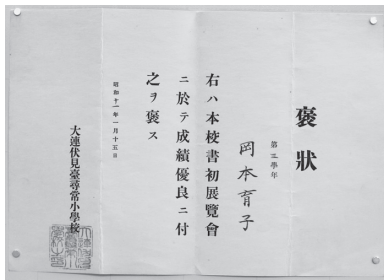 褒狀
第三學年
岡本育子
右ハ本校書初展覽會
ニ於テ成績優良ニ付
之ヲ褒ス
昭和十一年一月十五日
大連伏見臺尋常小學校